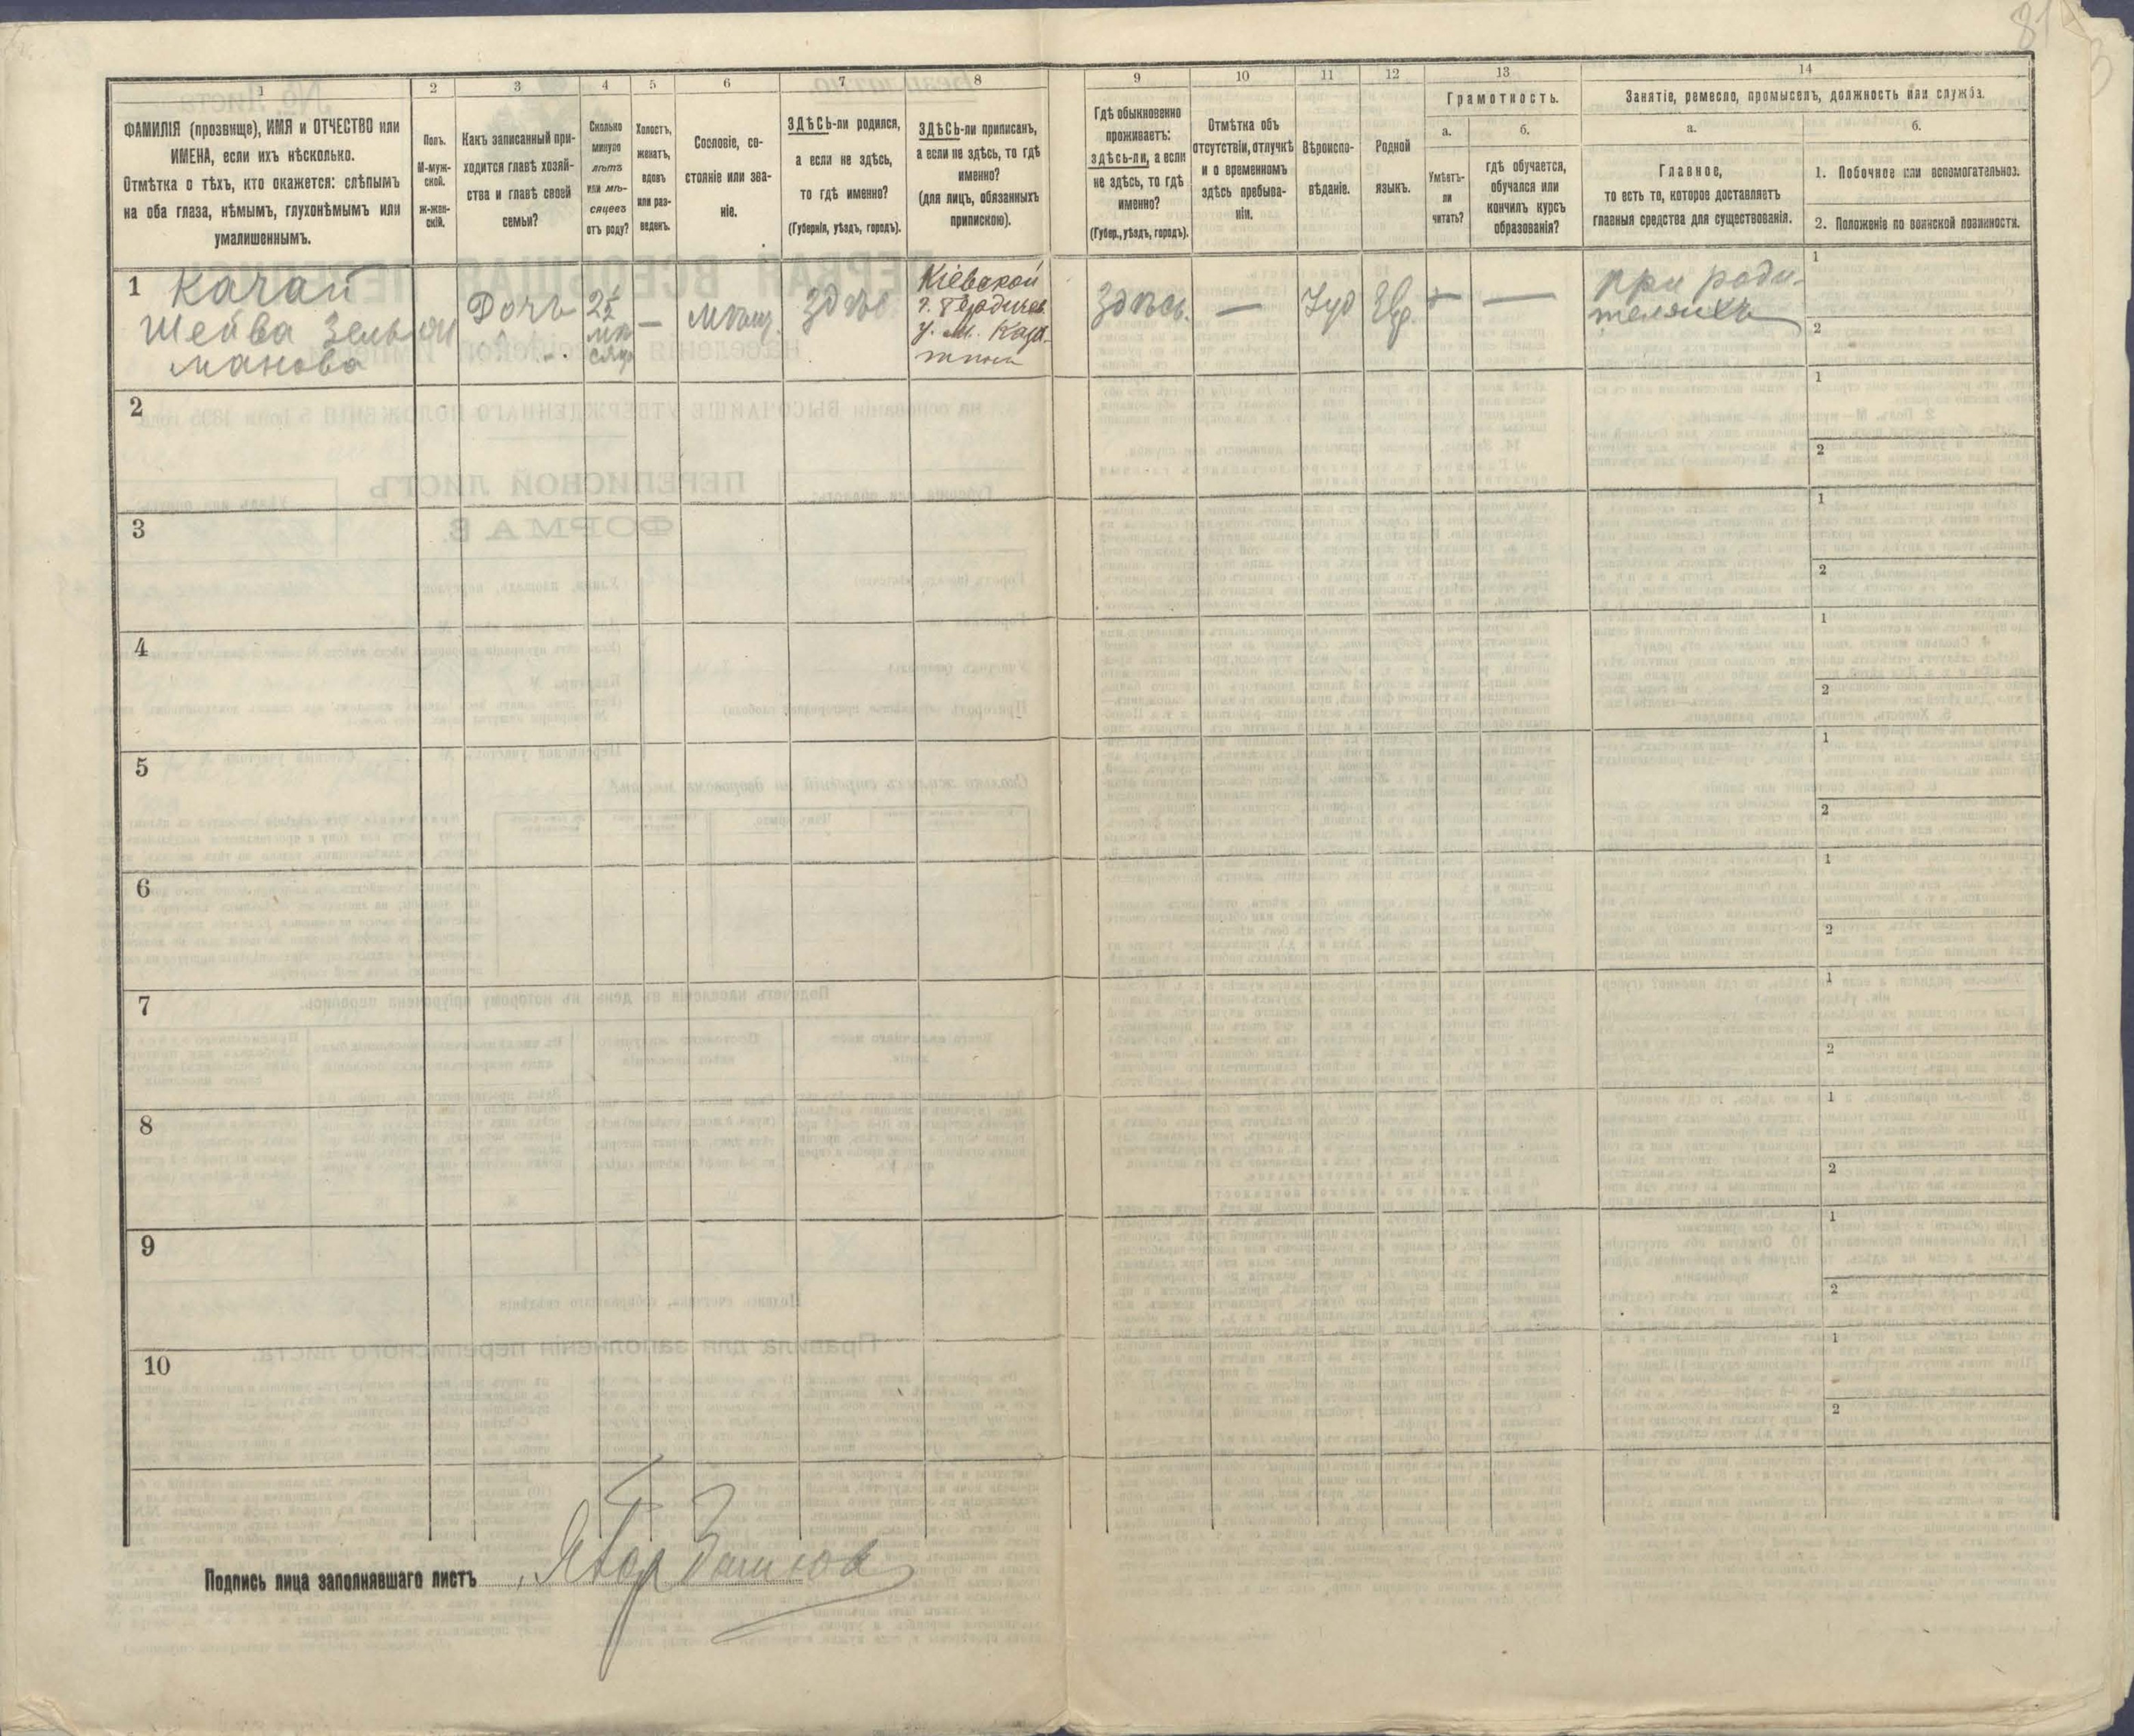 1
ФАМИЛІЯ (прозвище), ИМЯ и ОТЧЕСТВО или
ИМЕНА, если ихъ нѣсколько.
Отмѣтка о тѣхъ, кто окажется: слѣпымъ
на оба глаза, нѣмымъ, глухонѣмымъ или
умалишеннымъ.
2
Полъ.
М-муж-
ской.
Ж-жен-
скій.
3
Какъ записанный при-
ходится главѣ хозяй-
ства и главѣ своей
семьи?
4
Сколько
минуло
лѣтъ
или мѣ-
сяцевъ
отъ роду?
5
Холостъ,
женатъ,
вдовъ
или раз-
веденъ.
6
Сословіе, со-
стояніе или зва-
ніе.
7
ЗДѢСЬ-ли родился,
а если не здѣсь,
то гдѣ именно?
(Губернія, уѣздъ, городъ).
8
ЗДѢСЬ-ли приписанъ,
а если не здѣсь, то гдѣ
именно?
(для лицъ, обязанныхъ
припискою).
9
Гдѣ обыкновенно
проживаетъ:
здѣсь-ли, а если
не здѣсь, то гдѣ
именно?
(Губер., уѣздъ, городъ).
10
Отмѣтка объ
отсутствіи, отлучкѣ
и о временномъ
здѣсь пребыва-
ніи.
11
Вѣроиспо-
вѣданіе.
12
Родной
языкъ.
13
Грамотность.
а.
Умѣетъ-
ли
читать?
б.
гдѣ обучается,
обучался или
кончилъ курсъ
образованія?
14
Занятіе, ремесло, промыселъ, должность или служба.
а.
Главное,
то есть то, которое доставляетъ
главныя средства для существованія.
б.
1. Побочное или вспомогательное.
2. Положеніе по воинской повинности.
1
Качай
Шейва Зель
манова
Дочь
мѣ
сяц
—
мѣщ.
Здѣс
Кіевской
г. Бердичев.
у. м. Каза-
Здѣсь.
—
Іуд
Евр.
—
—
при роди-
теляхъ
1
2
2
1
2
3
1
2
4
1
2
5
1
2
6
1
2
7
1
2
8
1
2
9
1
2
10
1
2
Подпись лица заполнявшаго листъ